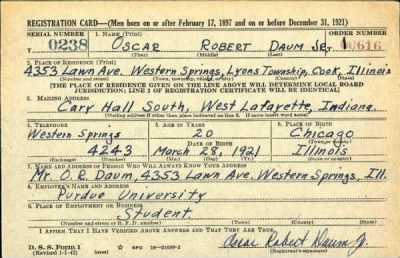 REGISTRATION CARD—(Men born on or after February 17, 1897 and on or before December 31, 1921)
SERIAL NUMBER 1. NAME (Print) ORDER NUMBER
0238 OSCAR ROBERT DAUM JR. 10616
(First) (Middle) (Last)
2. PLACE OF RESIDENCE (Print)
4353 LAWN AVE. WESTERN SPRINGS, LYONS TOWNSHIP, COOK, ILLINOIS
(Number and street) (Town, township, village, or city) (County) (State)
[THE PLACE OF RESIDENCE GIVEN ON THE LINE ABOVE WILL DETERMINE LOCAL BOARD
JURISDICTION; LINE 2 OF REGISTRATION CERTIFICATE WILL BE IDENTICAL]
3. MAILING ADDRESS
Cary Hall South, West Lafayette, Indiana
4. TELEPHONE 5. AGE IN YEARS 6. PLACE OF BIRTH
Western Springs 20 Chicago
DATE OF BIRTH
4243 March 28, 1921 Illinois
(Exchange) (Number) (Mo.) (Day) (Yr.) (State or country)
7. NAME AND ADDRESS OF PERSON WHO WILL ALWAYS KNOW YOUR ADDRESS
Mr. O. R. Daum, 4353 Lawn Ave. Western Springs, Ill.
8. EMPLOYER'S NAME AND ADDRESS
Purdue University
9. PLACE OF EMPLOYMENT OR BUSINESS
Student
I AFFIRM THAT I HAVE VERIFIED ABOVE ANSWERS AND THAT THEY ARE TRUE.
D. S. S. Form 1
(Revised 1-1-42) Oscar Robert Daum Jr.